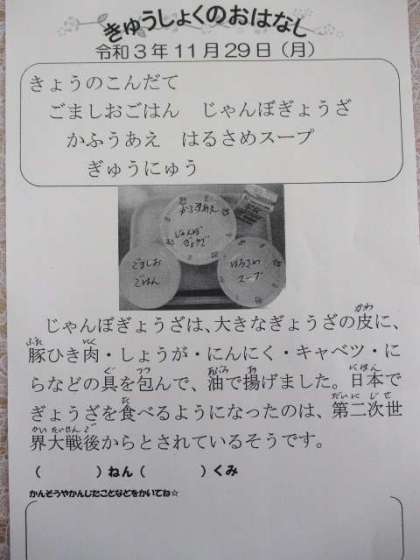 きゅうしょくのおはなし
令和3年11月29日(月)
きょうのこんだて
ごましおごはん じゃんぼぎょうざ
かふうあえ はるさめスープ
ぎゅうにゅう
かふうあえ
じゃんぼ
ぎょうざ
ごましお
ごはん
はるさめ
スープ
じゃんぼぎょうざは、大きなぎょうざの皮に、
豚ひき肉・しょうが・にんにく・キャベツ・に
らなどの具を包んで、油で揚げました。日本で
ぎょうざを食べるようになったのは、第二次世
界大戦後からとされているそうです。
( )ねん( )くみ
かんそうやかんしたことなどをかいてね☆